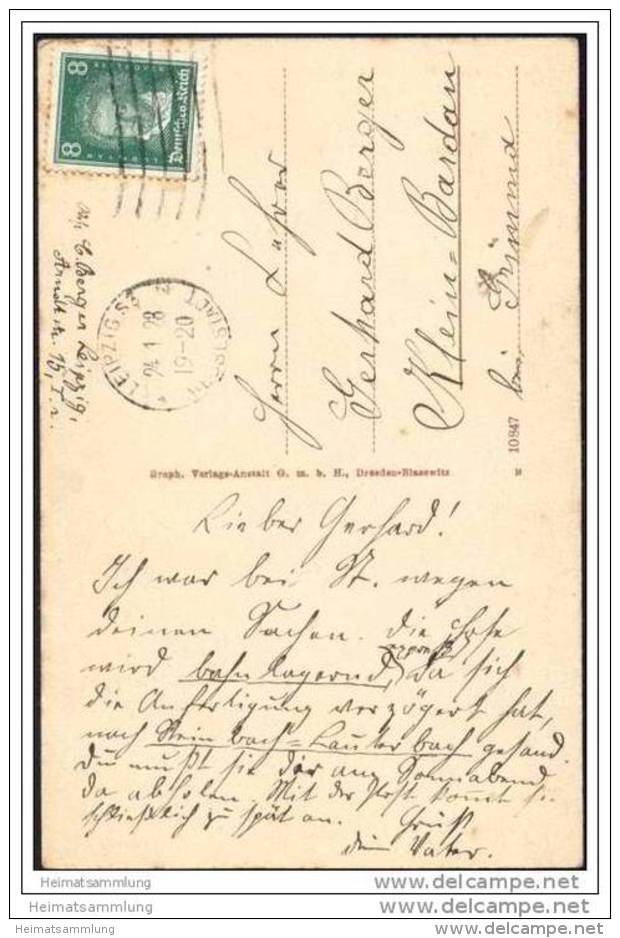 8
Deutsches Reich
LEIPZIG
24.1.28
19-20
Abs. C. Berger Leipzig,
Arndtstr. 15, I. r.
Herrn Lehrer
Gerhard Berger
Klein-Bardau
bei Grimma
10847
Graph. Verlags-Anstalt G. m. b. H., Dresden-Blasewitz
M
Lieber Gerhard!
Ich war bei St. wegen
deinen Sachen. Die Hose
wird bahnlagernd, da sich
die Anfertigung verzögert hat,
nach Steinbach-Lauterbach gesand.
Du mußt sie dir am Sonnabend
da abholen. Mit der Post kommt sie
schließlich zu spät an. Gruß
dein Vater.
Heimatsammlung
Heimatsammlung
Heimatsammlung
www.delcampe.net
www.delcampe.net
www.delcampe.net